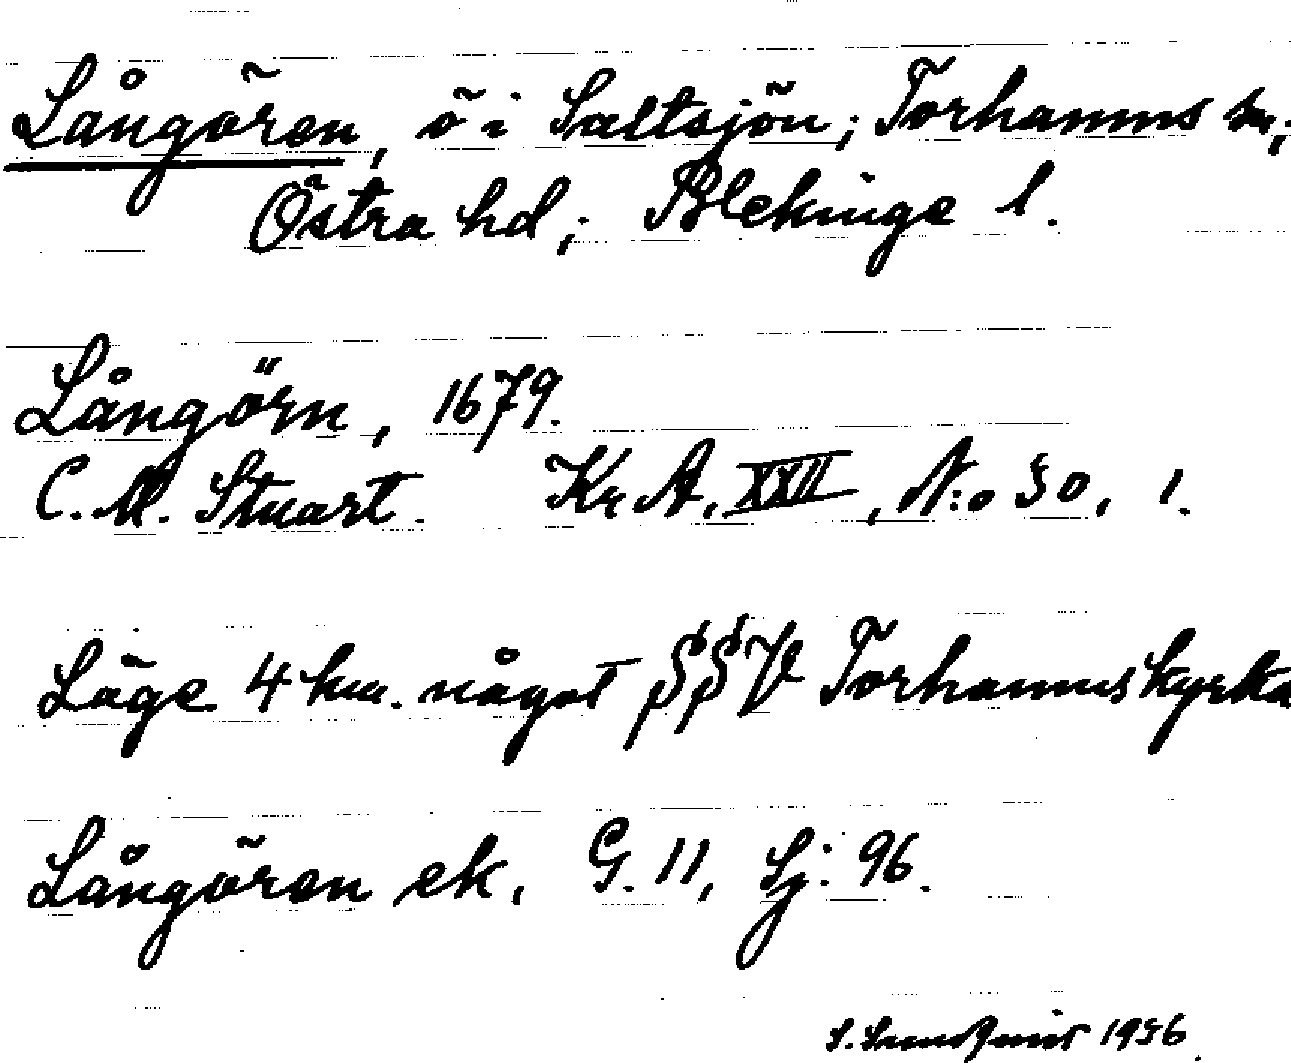 Långören, ö i Saltsjön; Torhamns sn;
Östra hd; Blekinge l.
Långörn, 1679.
C. M. Stuart. Kr. A. XXII, N:o 50, 1.
Läge 4 km. något SSV Torhamns kyrka
Långören ek. G. 11, Sj: 96.
S. Sundquist 1956.